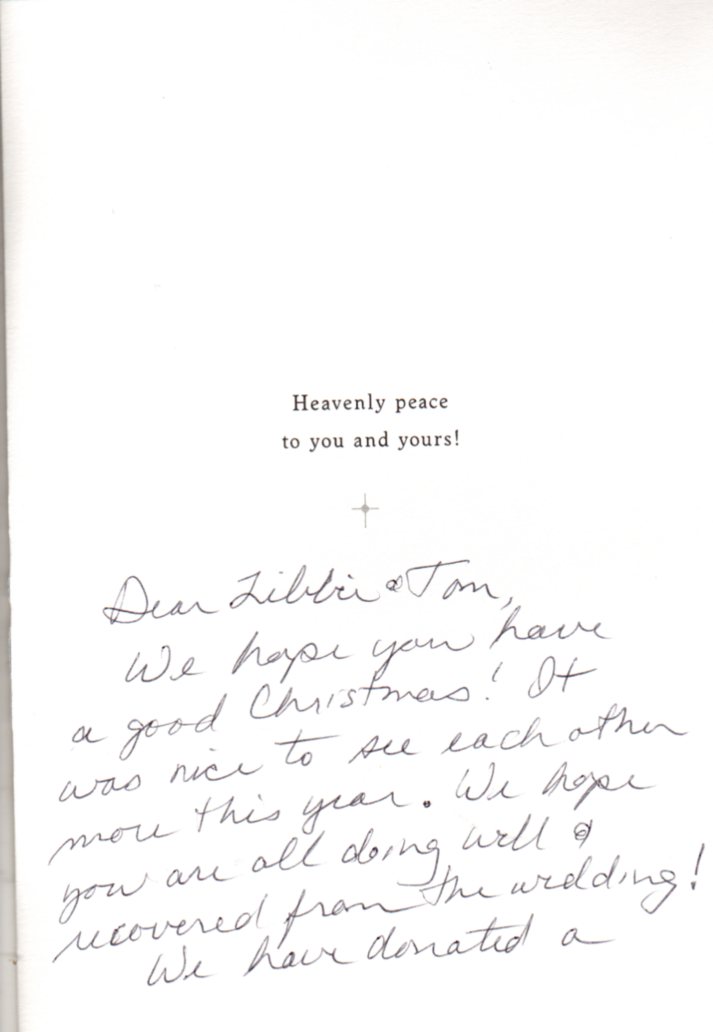 Heavenly peace
to you and yours!
Dear Libbie & Tom,
We hope you have
a good Christmas! It
was nice to see each other
more this year. We hope
you are all doing well &
recovered from the wedding!
We have donated a